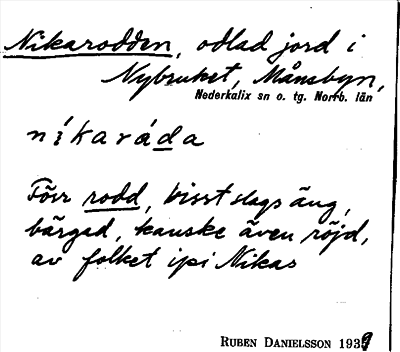 Nikarodden, odlad jord i
Nybruket, Månsbyn,
Nederkalix sn o. tg. Norrb. län
níkaráda
Förr rodd, visst slags äng,
bärgad, kanske även röjd,
av folket ipi Nikas
RUBEN DANIELSSON 1939